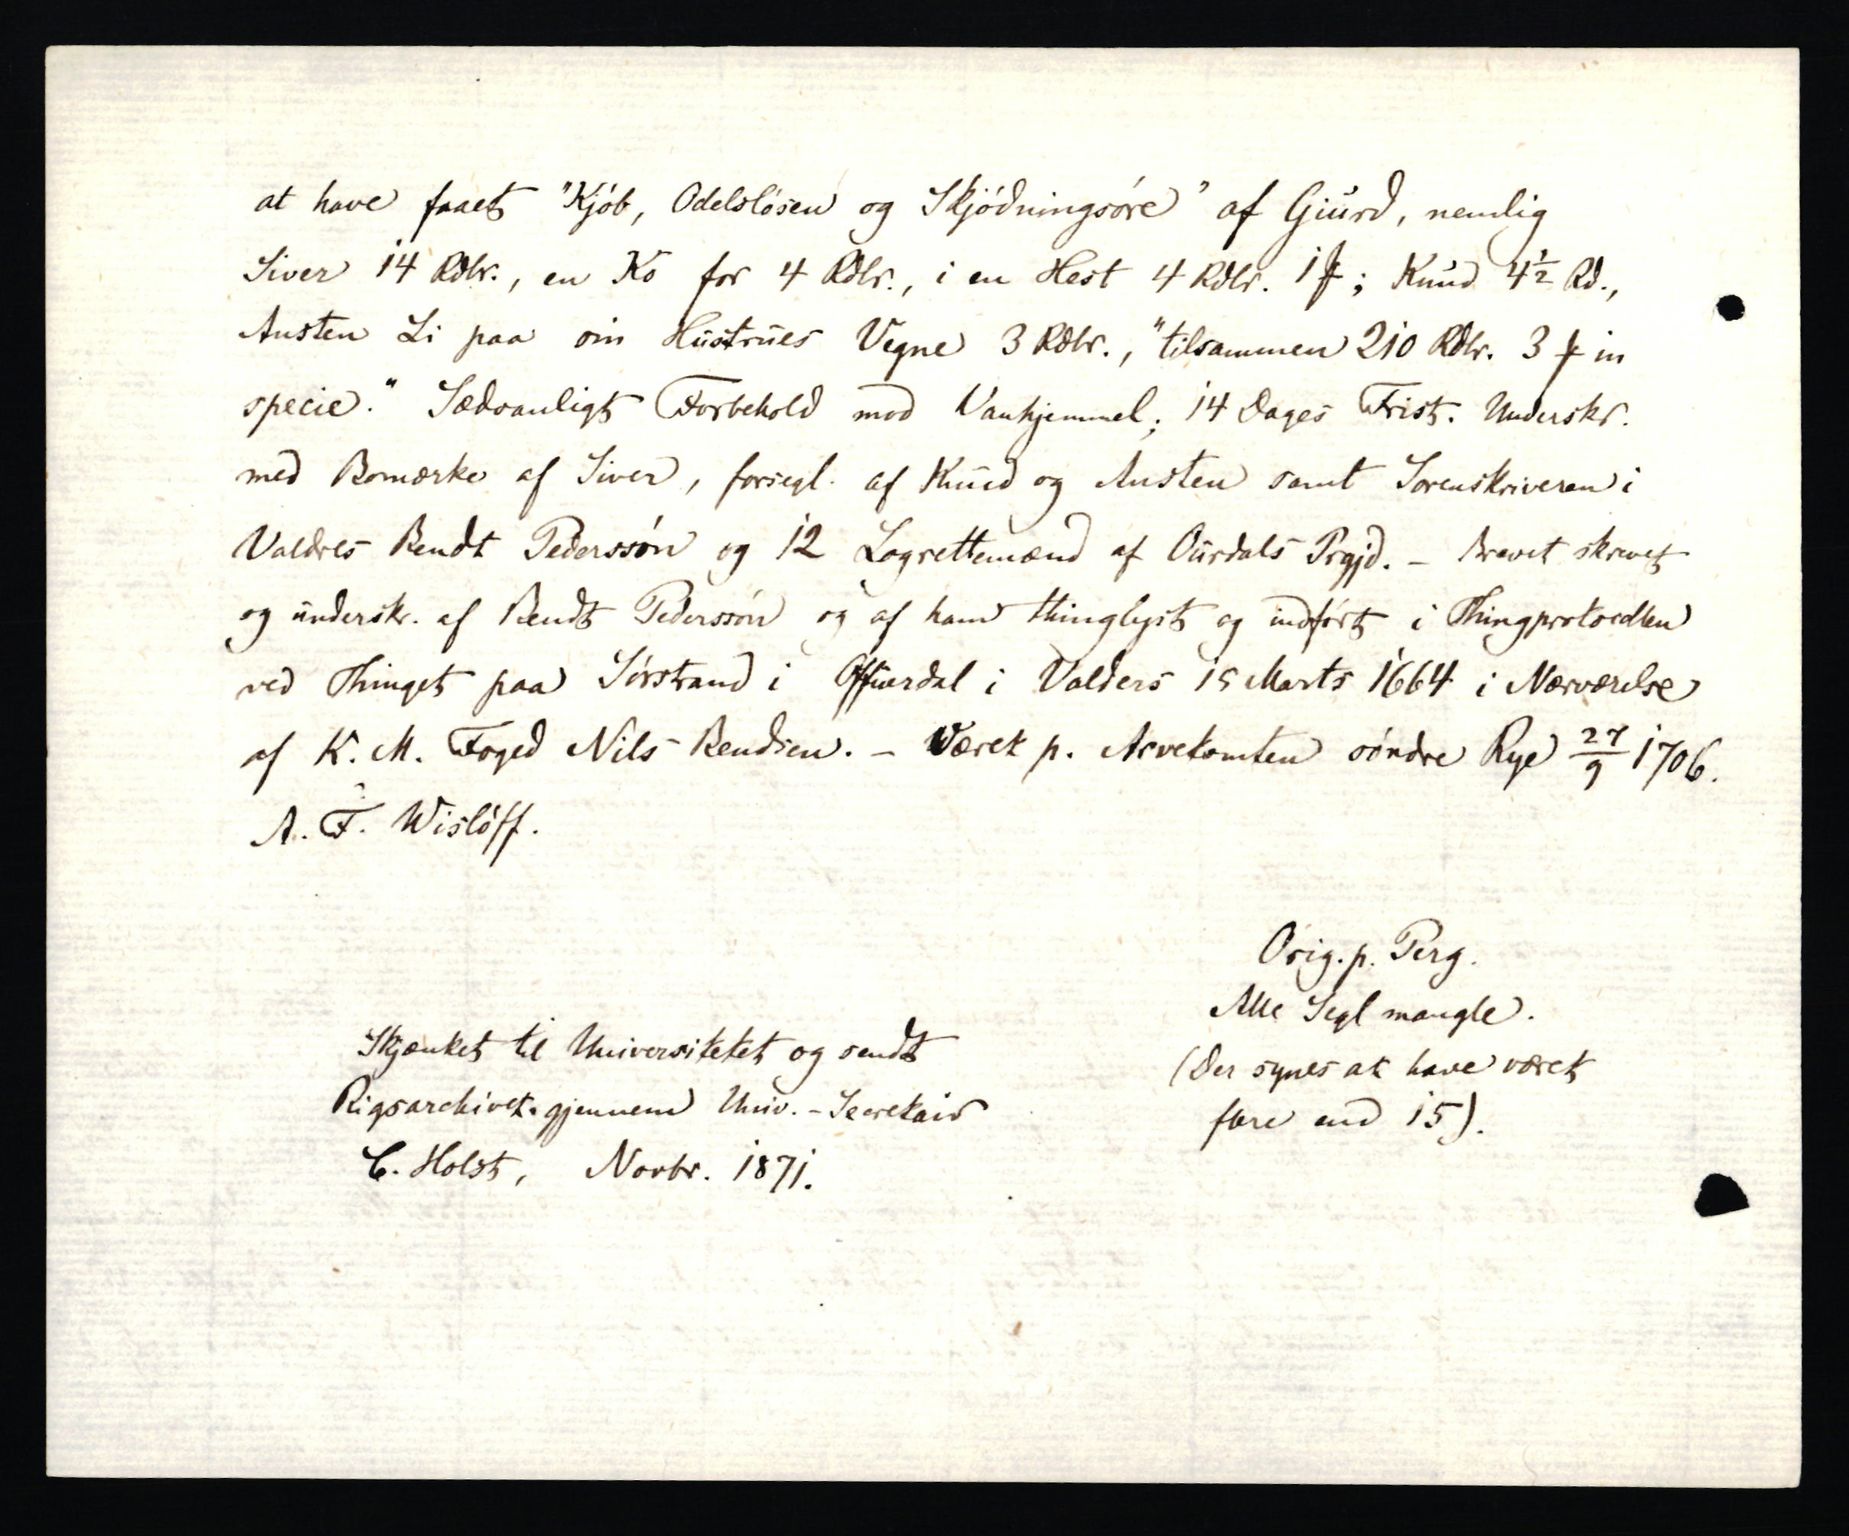 at have faaet "Kjöb, Odelslösen og Skjödningsöre" af Giurd, nemlig
Siver 14 Rdlr., en Ko for 4 Rdlr., i en Hest 4 Rdlr. 1 ; Knud 4½ Rd.,
Austen Li paa sin Hustrues Vegne 3 Rdlr., "tilsammen 210 Rdlr. 3 in
specie." Sædvanligt Forbehold mod Vanhjemmel; 14 Dages Frist. Underskr.
med Bomærke af Siver, forsegl. af Knud og Austen samt Sorenskriveren i
Valdres Bendt Pederssön og 12 Lagrettemænd af Ourdals Prgjd. - Brevet skrevet
og underskr. af Bendt Pederssön og af ham thinglyst og indfört i Thingprotocollen
ved Thinget paa Sörstrand i Offuerdal i Valders 15 Marts 1664 i Nærværelse
af K. M. Foged Nils Bendsen. - Været p. Arvetomten söndre Rye 27/9 1706.
A. F. Wislöff.
Orig. p. Perg.
Alle Segl mangle.
(Der synes at have været
flere end 15).
Skjænket til Universitetet og sendt
Rigsarchivet gjennem Univ.-Secretair
C. Holst, Novbr. 1871.